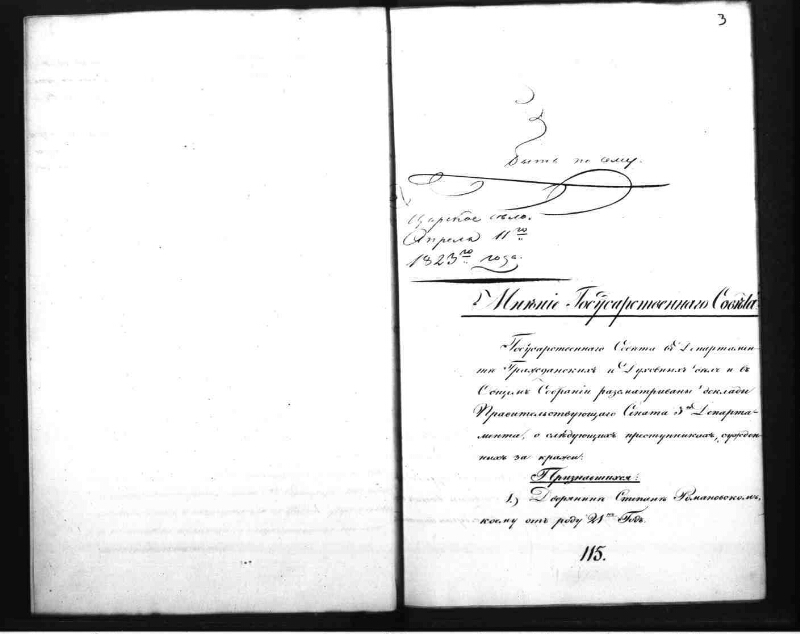 3
Быть по сему.
Царское село.
Апреля 11го
1823го года.
Мнѣніе Государственнаго Совѣта
Государственнаго Совѣта въ Департамен-
тѣ Гражданскихъ и Духовныхъ дѣлъ и въ
Общемъ Собраніи разсматриваны доклады
Правительствующаго Сената 5го Департа-
мента, о слѣдующихъ преступникахъ, сужден-
ныхъ за кражи:
Признавшихся:
1) Дворянинѣ Степанѣ Романовскомъ,
коему отъ роду 21 Годъ.
115.